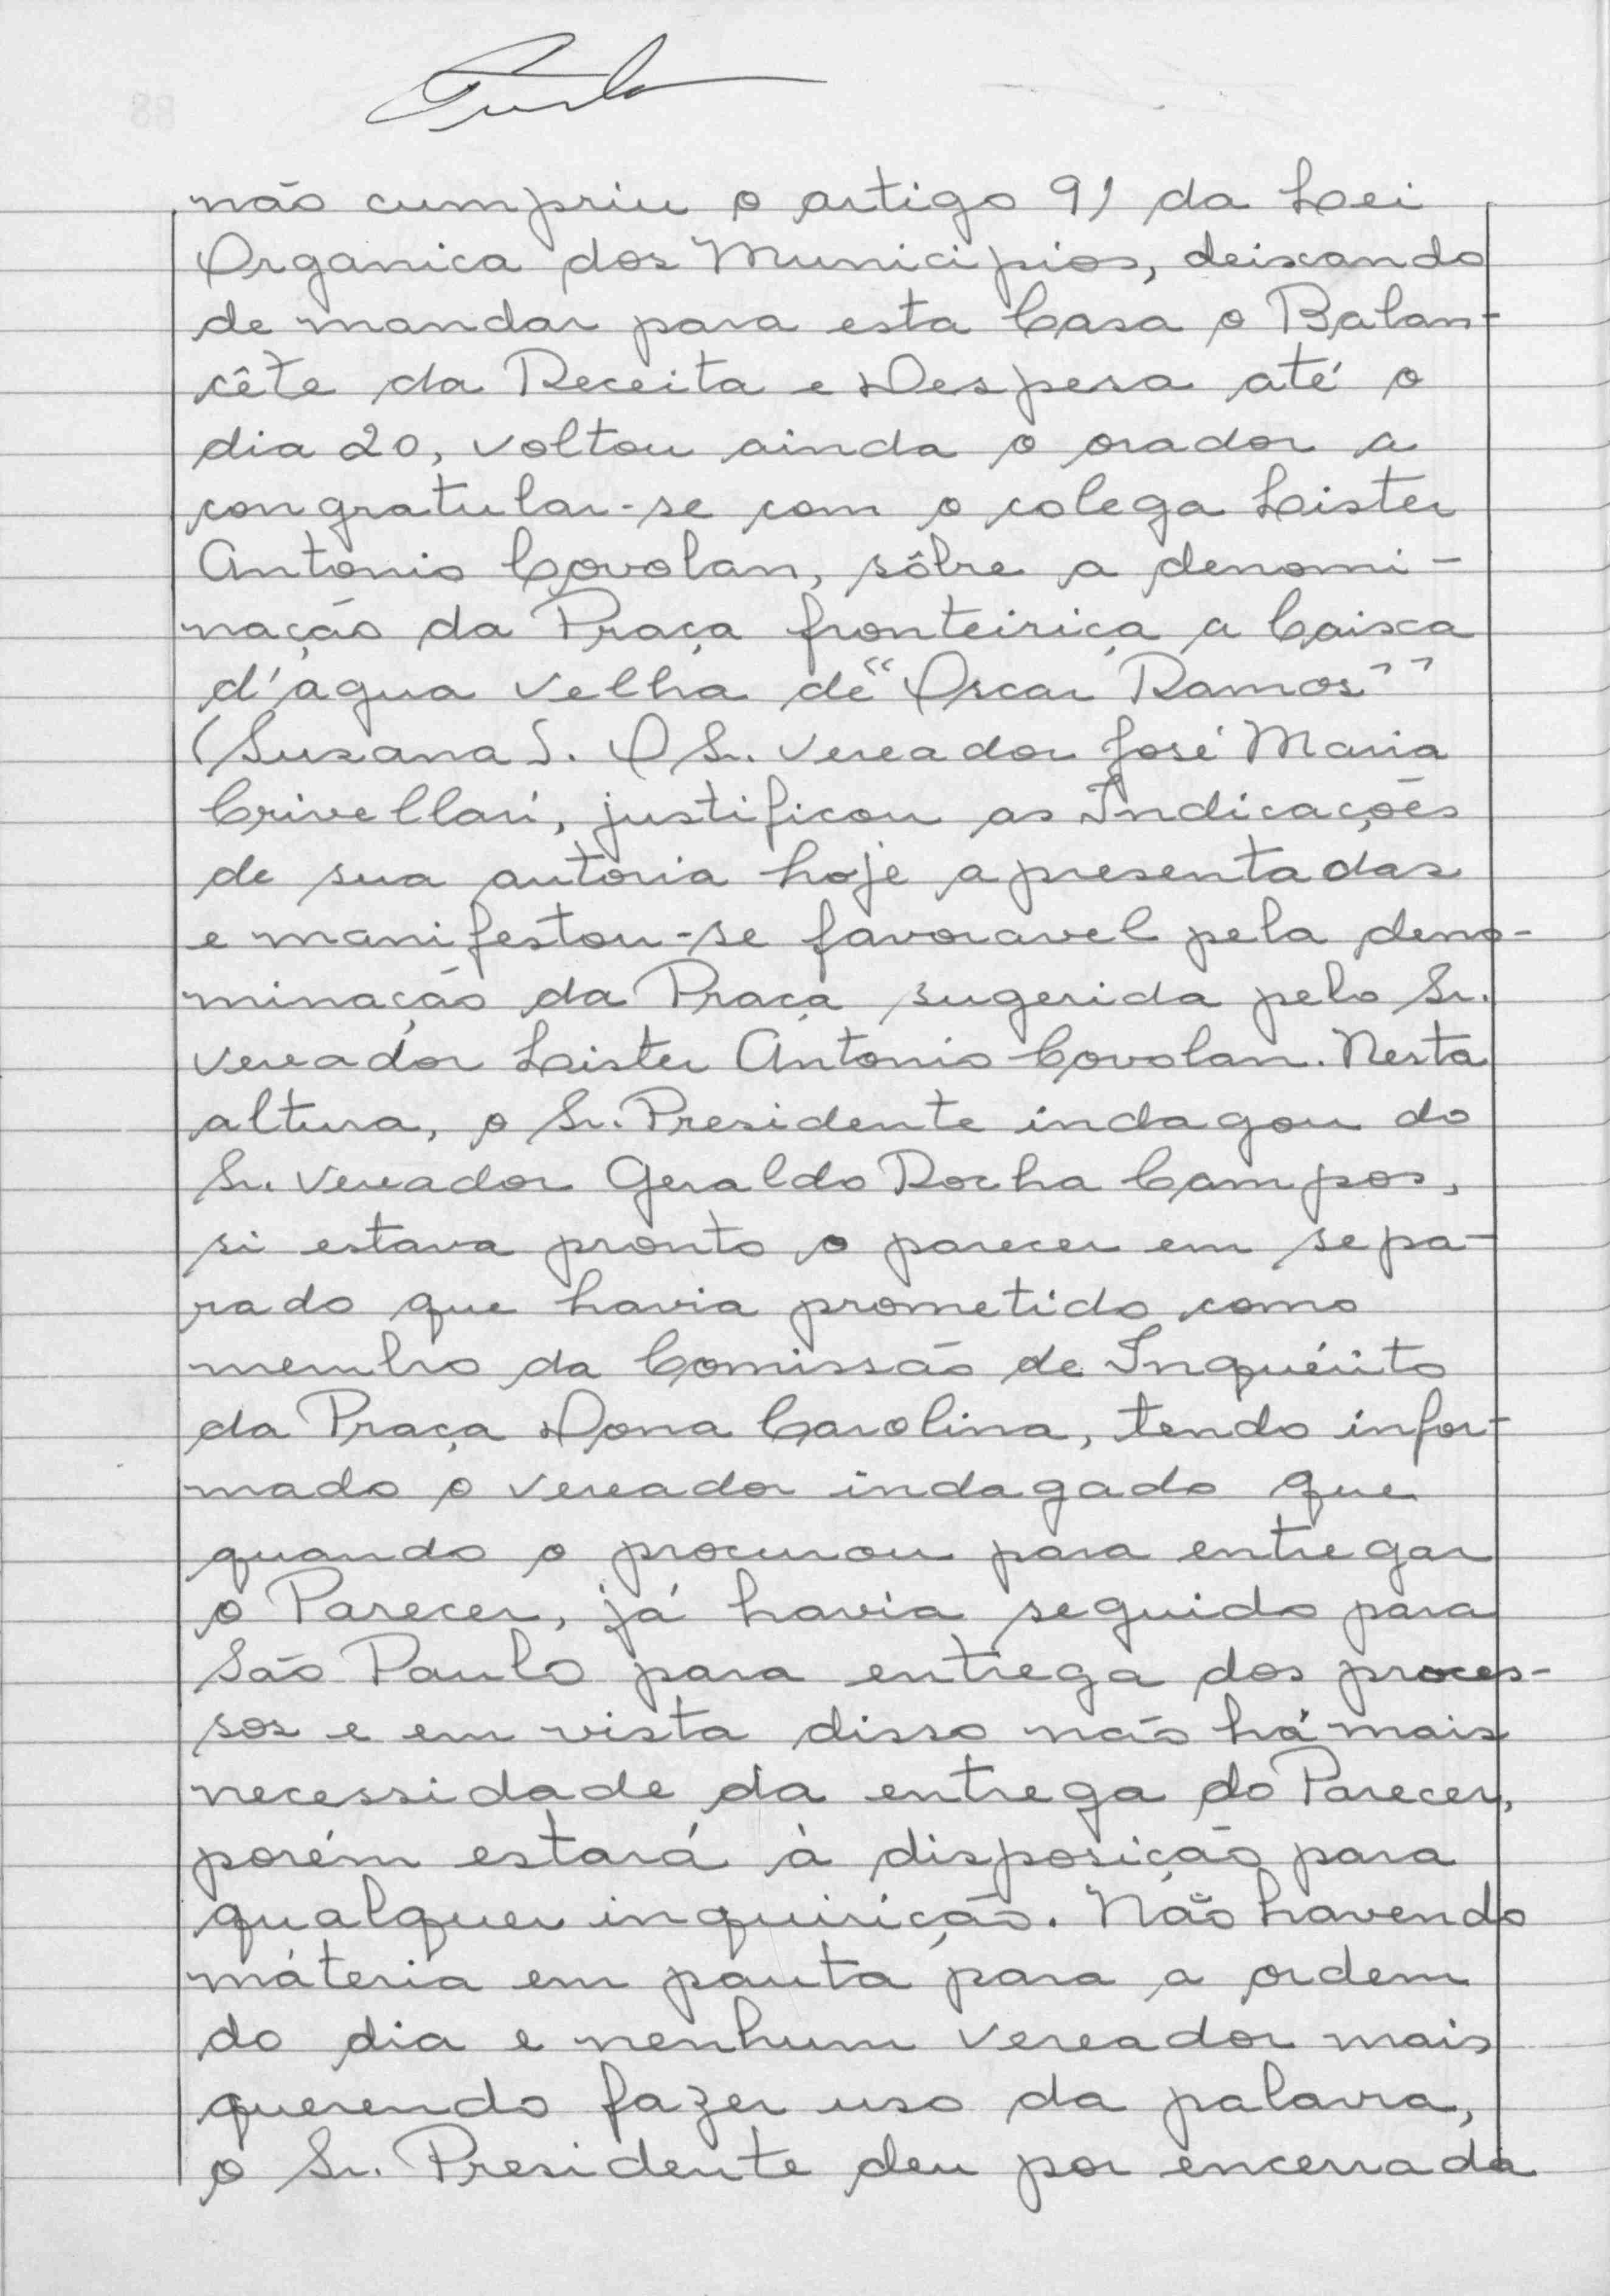 não cumpriu o artigo 91 da Lei
Organica dos Municipios, deixando
de mandar para esta Casa o Balan-
cête da Receita e Despesa até o
dia 20, voltou ainda o orador a
congratular-se com o colega Lister
Antonio Covolan, sôbre a denomi-
nação da Praça fronteiriça a Caixa
d'agua velha de "Oscar Ramos"
(Suzana). O Sr. vereador José Maria
Crivellari, justificou as Indicações
de sua autoria hoje apresentadas
e manifestou-se favoravel pela deno-
minação da Praça sugerida pelo Sr.
vereador Lister Antonio Covolan. Nesta
altura, o Sr. Presidente indagou do
Sr. vereador Geraldo Rocha Campos,
si estava pronto o parecer em sepa-
rado que havia prometido como
membro da Comissão de Inquérito
da Praça Dona Carolina, tendo infor-
mado o vereador indagado que
quando o procurou para entregar
o Parecer, já havia seguido para
São Paulo para entrega dos proces-
sos e em vista disso não há mais
necessidade da entrega do Parecer,
porém estará à disposição para
qualquer inquirição. Não havendo
máteria em pauta para a ordem
do dia e nenhum vereador mais
querendo fazer uso da palavra,
o Sr. Presidente deu por encerrada